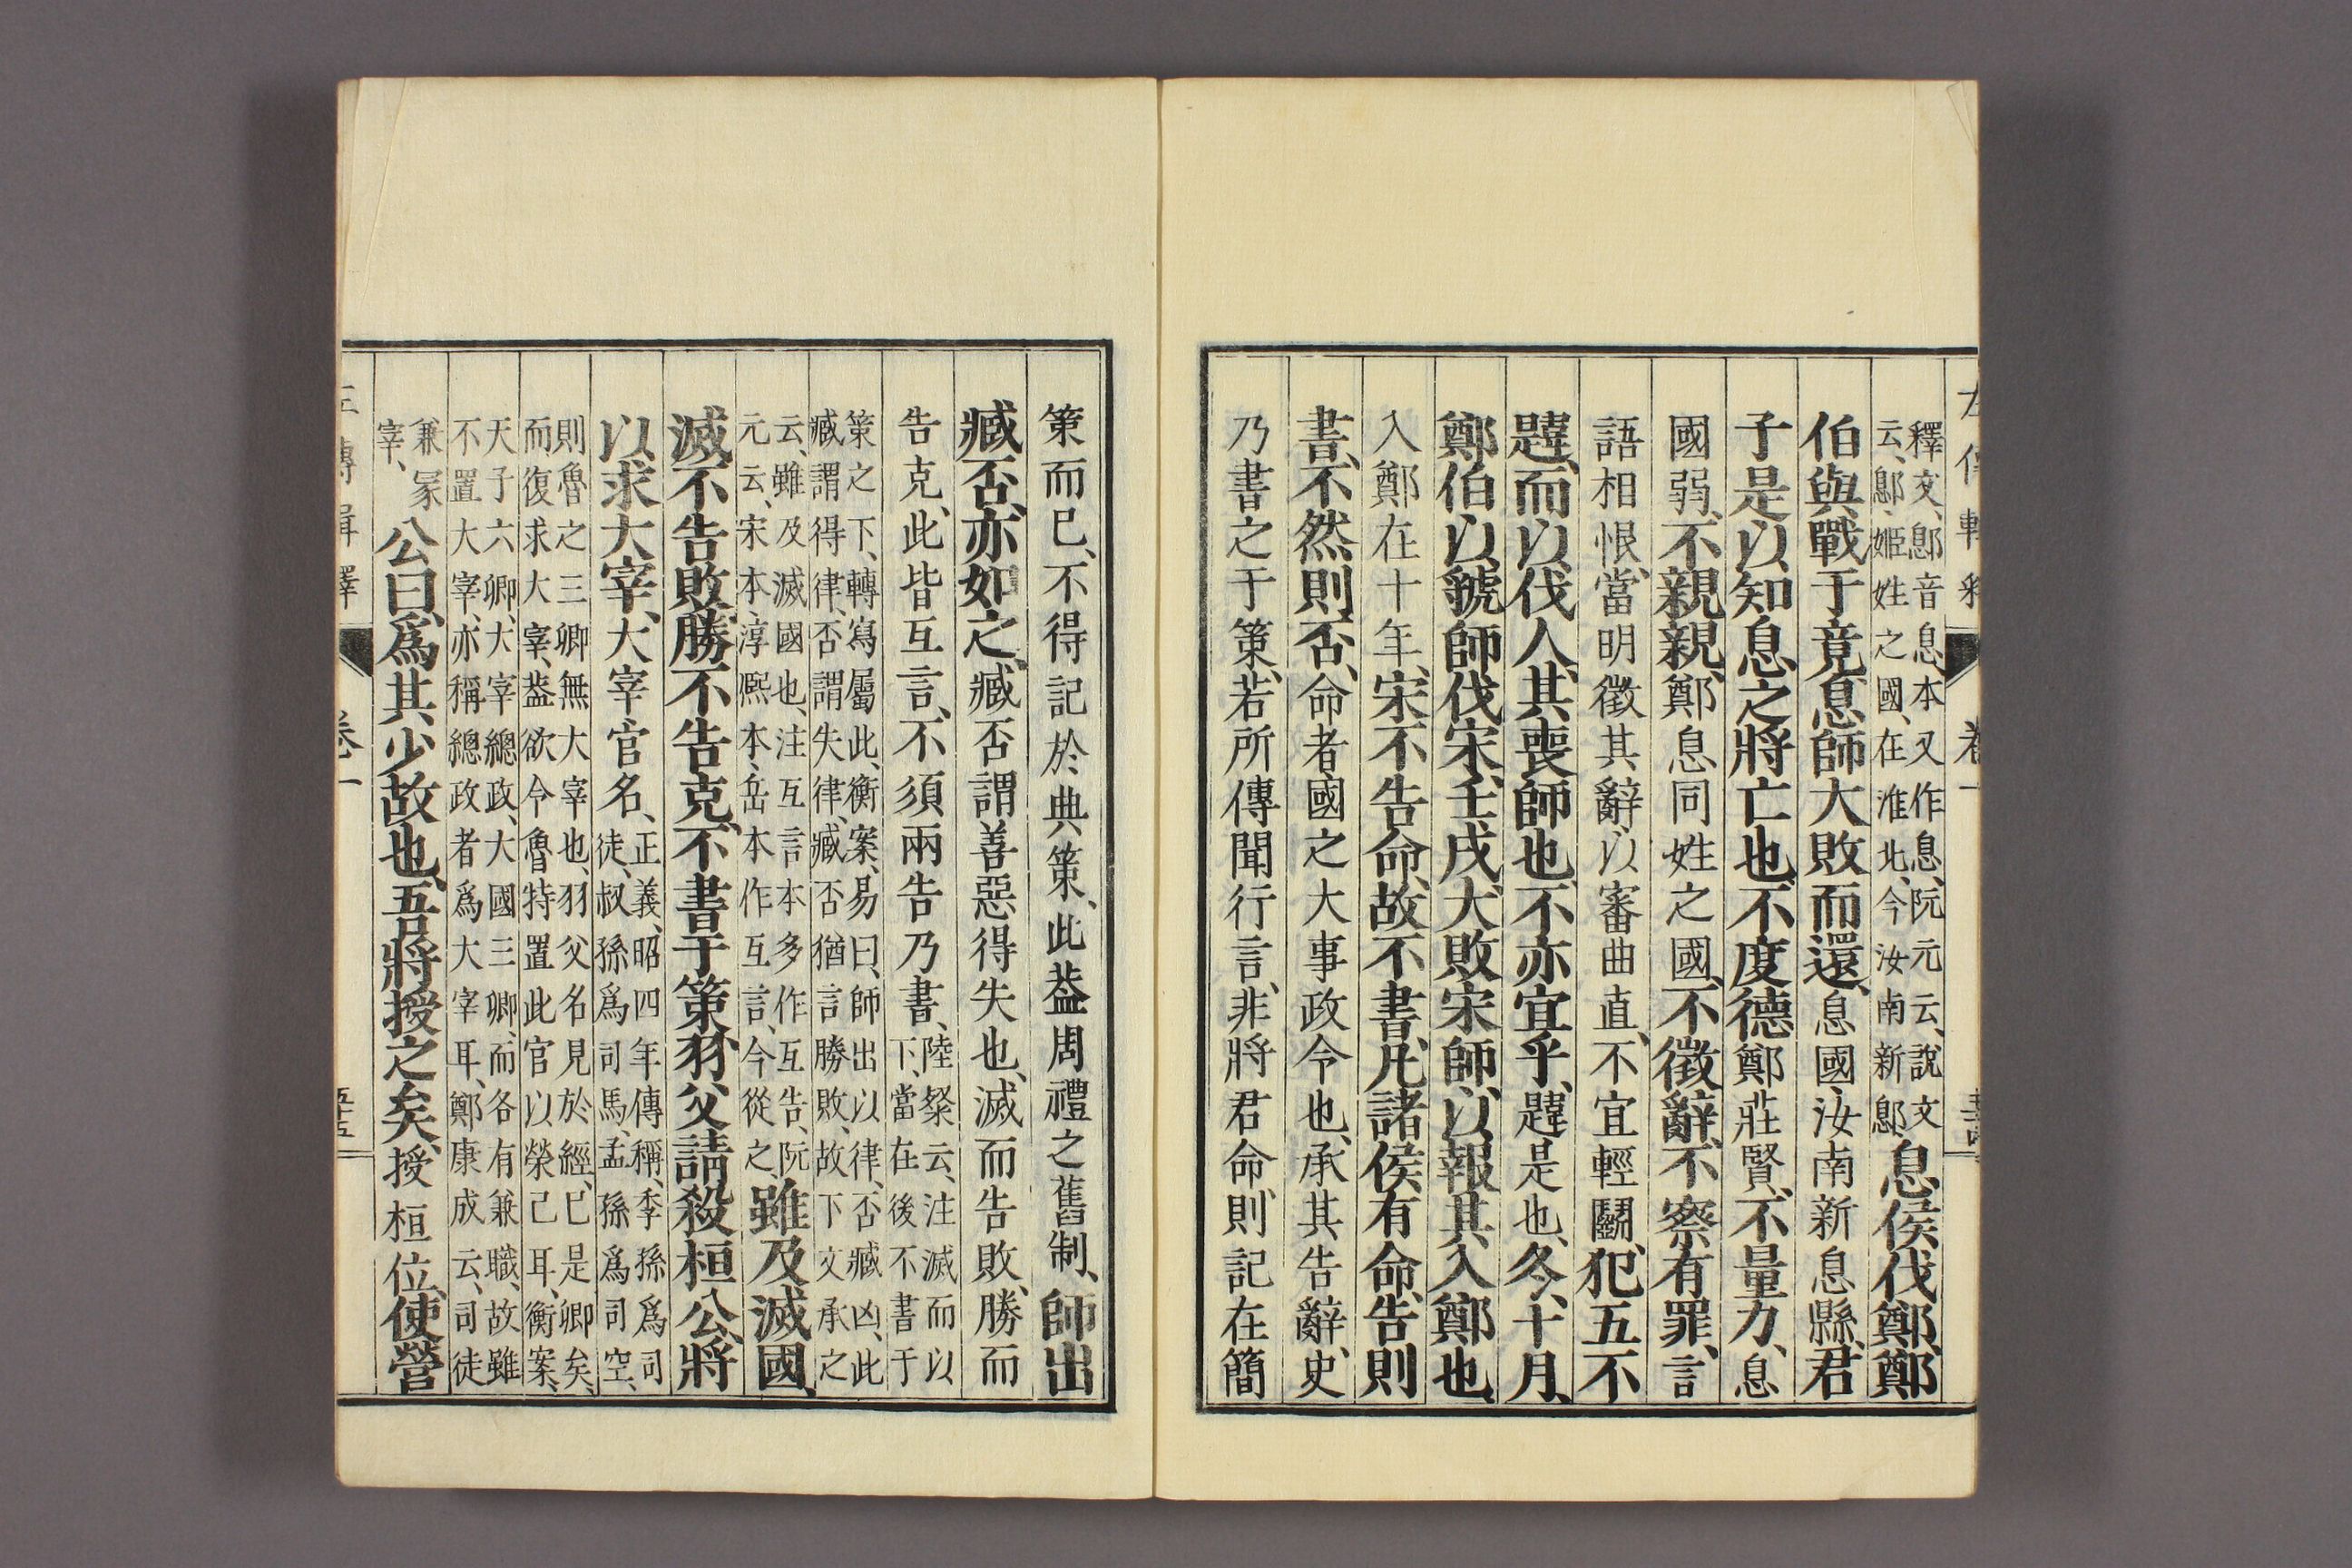 左傳輯釋 卷一
釋文、鄎音息、本又作息、阮元云、說文
云、鄎、姬姓之國、在淮北、今汝南新鄎、
息侯伐鄭、鄭
伯與戰于竟、息師大敗而還、息國、汝南新息縣、君
子是以知息之將亡也、不度德、鄭莊賢、不量力、息
國弱、不親親、鄭息同姓之國、不徵辭、不察有罪、言
語相恨、當明徵其辭、以審曲直、不宜輕鬭、犯五不
韙、而以伐人、其喪師也、不亦宜乎、韙是也、冬、十月、
鄭伯以虢師伐宋、壬戌、大敗宋師、以報其入鄭也、
入鄭在十年、宋不告命、故不書、凡諸侯有命、告則
書、不然則否、命者國之大事政令也、承其告辭、史
乃書之于策、若所傳聞行言、非將君命、則記在簡
策而已、不得記於典策、此葢周禮之舊制、師出
臧否、亦如之、臧否謂善惡得失也、滅而告敗、勝而
告克、此皆互言、不須兩告乃書、
陸粲云、注滅而以
下、當在後不書于
策之下、轉寫屬此、衡案、易曰、師出以律、否臧凶、此
臧謂得律、否謂失律、臧否猶言勝敗、故下文承之
云、雖及滅國也、注互言本多作互告、阮
元云、宋本、淳熙本、岳本作互言、今從之、
雖及滅國、
滅不告敗、勝不告克、不書于策、羽父請殺桓公、將
以求大宰、大宰官名、
正義、昭四年傳稱、季孫爲司
徒、叔孫爲司馬、孟孫爲司空、
則魯之三卿無大宰也、羽父名見於經、已是卿矣、
而復求大宰、葢欲令魯特置此官以榮己耳、衡案、
天子六卿、大宰總政、大國三卿、而各有兼職、故雖
不置大宰、亦稱總政者爲大宰耳、鄭康成云、司徒
兼冢
宰、
公曰、爲其少故也、吾將授之矣、授桓位、使營
卷一
五十五